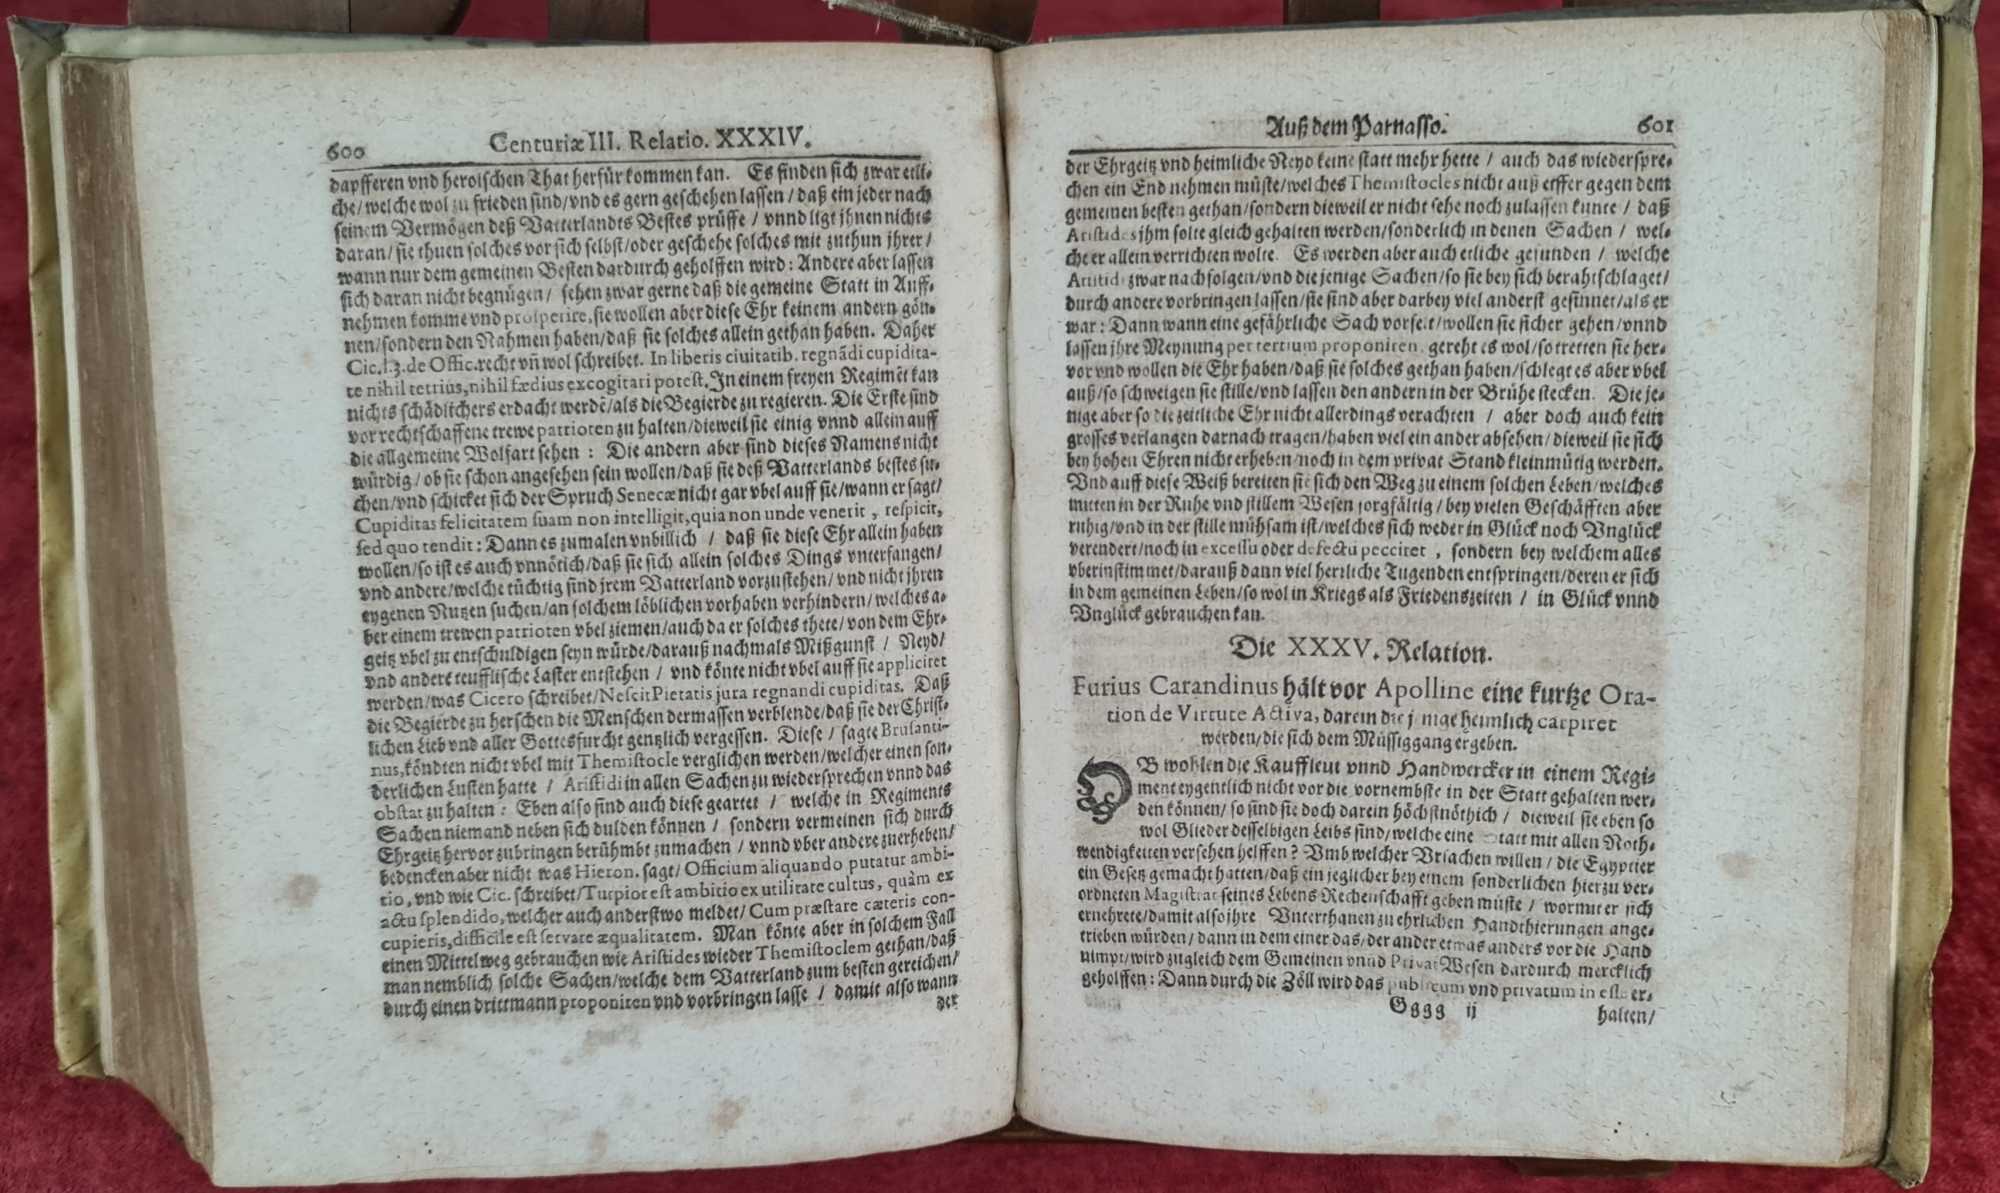 600 Centuriæ III. Relatio. XXXIV.
dapfferen vnd heroischen That herfür kommen kan. Es finden sich zwar etli-
che/welche wol zu frieden sind/vnd es gern geschehen lassen/daß ein jeder nach
seinem Vermögen deß Vatterlandts Bestes prüffe/vnnd ligt jhnen nichts
daran/sie thuen solches vor sich selbst/oder geschehe solches mit zuthun jhrer/
wann nur dem gemeinen Besten dardurch geholffen wird: Andere aber lassen
sich daran nicht begnügen/ sehen zwar gerne daß die gemeine Statt in Auff-
nehmen komme vnd prosperire, sie wollen aber diese Ehr keinem andern gön-
nen/sondern den Nahmen haben/daß sie solches allein gethan haben. Daher
Cic. l.3. de Offic. recht vñ wol schreibet. In liberis ciuitatib. regnãdi cupidita-
te nihil tetriùs, nihil fœdius excogitari potest. In einem freyen Regimẽt kan
nichts schädlichers erdacht werdẽ/als die Begierde zu regieren. Die Erste sind
vor rechtschaffene trewe patrioten zu halten/dieweil sie einig vnnd allein auff
die allgemeine Wolfart sehen: Die andern aber sind dieses Namens nicht
würdig/ob sie schon angesehen sein wollen/daß sie deß Vatterlands bestes su-
chen/vnd schicket sich der Spruch Senecæ nicht gar vbel auff sie/wann er sagt/
Cupiditas felicitatem suam non intelligit, quia non unde venerit, respicit,
sed quo tendit: Dann es zumalen vnbillich / daß sie diese Ehr allein haben
wollen/so ist es auch vnnötich/daß sie sich allein solches Dings vnterfangen/
vnd andere/welche tüchtig sind jrem Vatterland vorzustehen/vnd nicht jhren
eygenen Nutzen suchen/an solchem löblichen vorhaben verhindern/welches a-
ber einem trewen patrioten vbel ziemen/auch da er solches thete/von dem Ehr-
geitz vbel zu entschuldigen seyn würde/darauß nachmals Mißgunst / Neyd/
vnd andere teufflische Laster entstehen / vnd könte nicht vbel auff sie appliciret
werden/was Cicero schreibet/Nescit Pietatis jura regnandi cupiditas. Daß
die Begierde zu herschen die Menschen dermassen verblende/daß sie der Christ-
lichen Lieb vnd aller Gottesfurcht gentzlich vergessen. Diese / sagte Brusanti-
nus, köndten nicht vbel mit Themistocle verglichen werden/welcher einen son-
derlichen Lusten hatte / Aristidi in allen Sachen zu wiedersprechen vnnd das
obstat zu halten: Eben also sind auch diese geartet / welche in Regiments
Sachen niemand neben sich dulden können / sondern vermeinen sich durch
Ehrgeitz hervor zubringen berühmbt zumachen / vnnd vber andere zuerheben/
bedencken aber nicht was Hieron. sagt/Officium aliquando putatur ambi-
tio, vnd wie Cic. schreibet/Turpior est ambitio ex utilitate cultus, quàm ex
actu splendido, welcher auch anderstwo meldet/Cum præstare cæteris con-
cupieris, difficile est servare æqualitatem. Man könte aber in solchem Fall
einen Mittelweg gebrauchen wie Aristides wieder Themistoclem gethan/daß
man nemblich solche Sachen/welche dem Vatterland zum besten gereichen/
durch einen drittmann proponiren vnd vorbringen lasse / damit also wann
der
Auß dem Parnasso. 601
der Ehrgeitz vnd heimliche Neyd keine statt mehr hette / auch das wiederspre-
chen ein End nehmen müste/welches Themistocles nicht auß eiffer gegen dem
gemeinen besten gethan/sondern dieweil er nicht sehe noch zulassen kunte / daß
Aristides jhm solte gleich gehalten werden/sonderlich in denen Sachen / wel-
che er allein verrichten wolte. Es werden aber auch etliche gefunden / welche
Aristidi zwar nachfolgen/vnd die jenige Sachen/so sie bey sich berahtschlaget/
durch andere vorbringen lassen/sie sind aber darbey viel anderst gesinnet/als er
war: Dann wann eine gefährliche Sach vorfelt/wollen sie sicher gehen/vnnd
lassen jhre Meynung per tertium proponiren, gereht es wol/so tretten sie her-
vor vnd wollen die Ehr haben/daß sie solches gethan haben/schlegt es aber vbel
auß/so schweigen sie stille/vnd lassen den andern in der Brühe stecken. Die je-
nige aber so die zeitliche Ehr nicht allerdings verachten / aber doch auch kein
grosses verlangen darnach tragen/haben viel ein ander absehen/dieweil sie sich
bey hohen Ehren nicht erheben/noch in dem privat Stand kleinmütig werden.
Vnd auff diese Weiß bereiten sie sich den Weg zu einem solchen Leben/welches
mitten in der Ruhe vnd stillem Wesen sorgfältig/bey vielen Geschäfften aber
ruhig/vnd in der stille mühsam ist/welches sich weder in Glück noch Vnglück
verendert/noch in excessu oder defectu pecciret, sondern bey welchem alles
vberinstimmet/darauß dann viel herrliche Tugenden entspringen/deren er sich
in dem gemeinen Leben/so wol in Kriegs als Friedenszeiten / in Glück vnnd
Vnglück gebrauchen kan.
Die XXXV. Relation.
Furius Carandinus hält vor Apolline eine kurtze Ora-
tion de Virtute Activa, darein die jenige heimlich carpiret
werden/die sich dem Müssiggang ergeben.
OB wohlen die Kauffleut vnnd Handwercker in einem Regi-
ment eygentlich nicht vor die vornembste in der Statt gehalten wer-
den können/so sind sie doch darein höchstnöthich / dieweil sie eben so
wol Glieder desselbigen Leibs sind/welche eine Statt mit allen Noth-
wendigkeiten versehen helffen? Vmb welcher Vrsachen willen/die Egyptier
ein Gesetz gemacht hatten/daß ein jeglicher bey einem sonderlichen hierzu ver-
ordneten Magistrat seines Lebens Rechenschafft geben müste / wormit er sich
ernehrete/damit also jhre Vnterthanen zu ehrlichen Handthierungen ange-
trieben würden/dann in dem einer das/der ander etwas anders vor die Hand
nimpt/wird zugleich dem Gemeinen vnnd Privat Wesen dardurch mercklich
geholffen: Dann durch die Zöll wird das publicum vnd privatum in esse er-
Gggg ij halten/